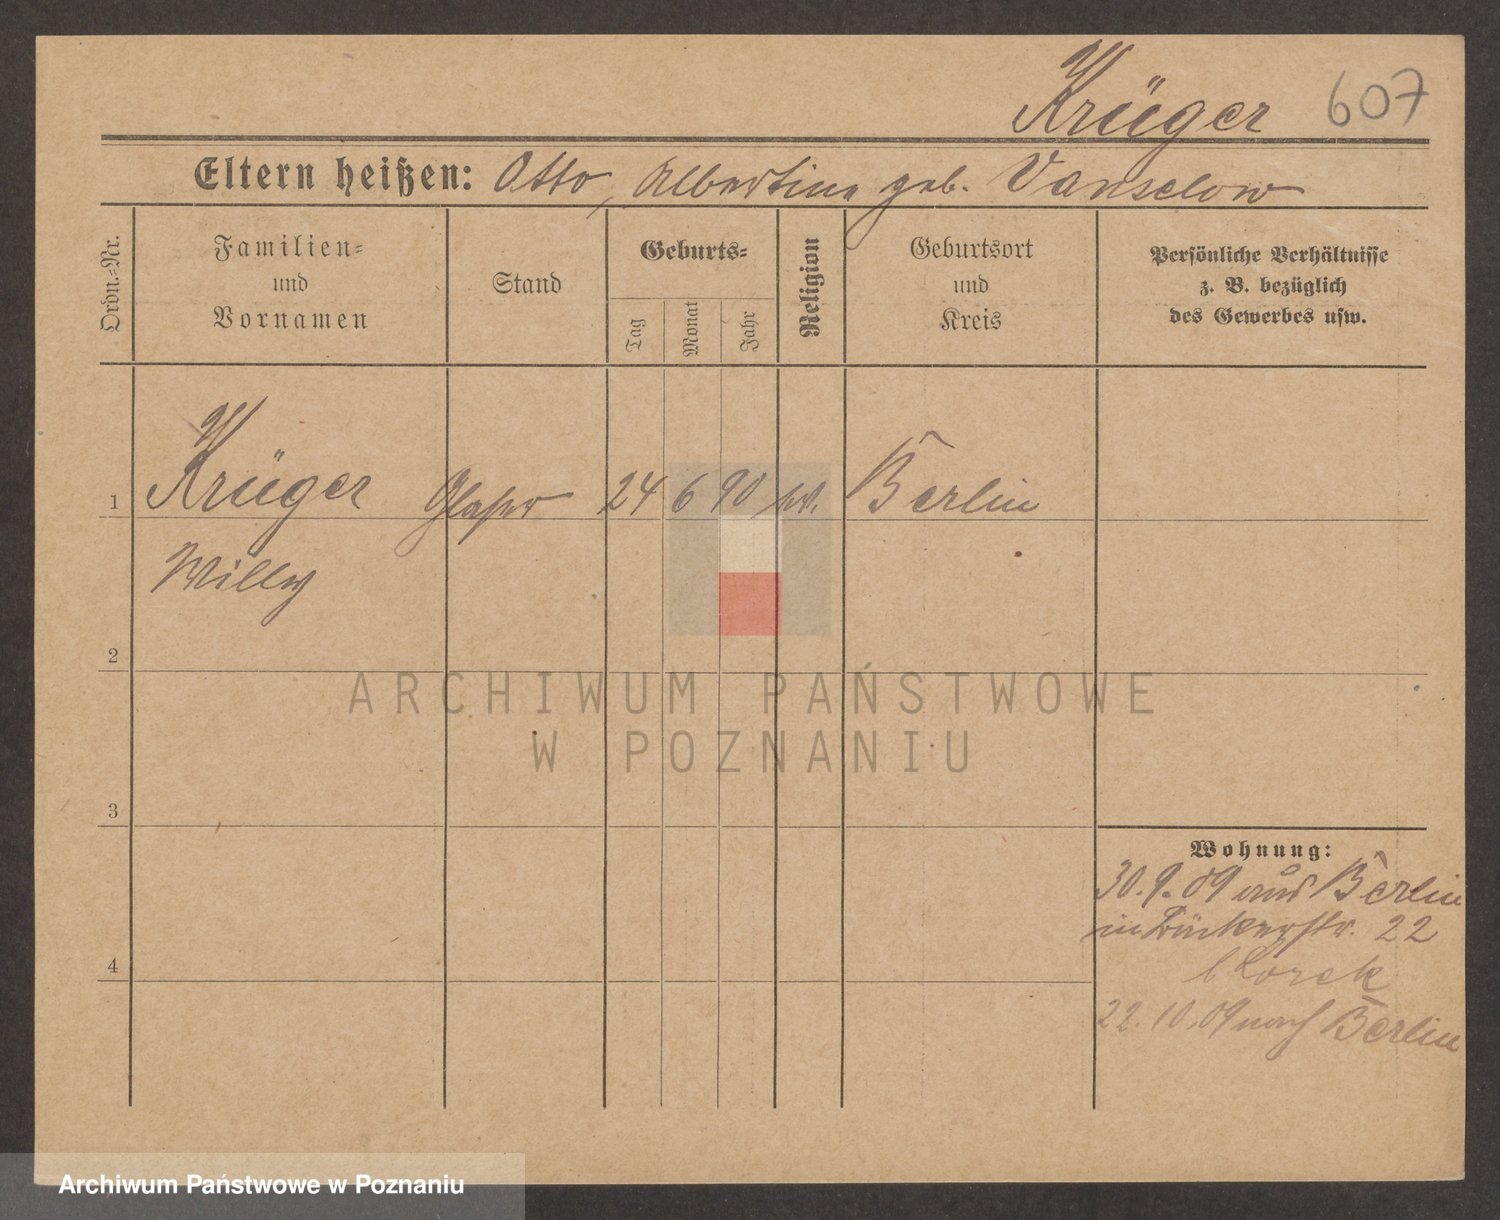 Krüger 607
Eltern heißen: Otto, Albertine geb. Vanselow
Ordn.=Nr.
Familien=
und
Vornamen
Stand
Geburts=
Tag
Monat
Jahr
Religion
Geburtsort
und
Kreis
Persönliche Verhältnisse
z. B. bezüglich
des Gewerbes usw.
1 Krüger Glaser 24 6 90 ev. Berlin
Willy
2
3
4
Wohnung:
30.9.09 aus Berlin
22
b Lorek
22.10.09 nach Berlin
ARCHIWUM PAŃSTWOWE
W POZNANIU
Archiwum Państwowe w Poznaniu